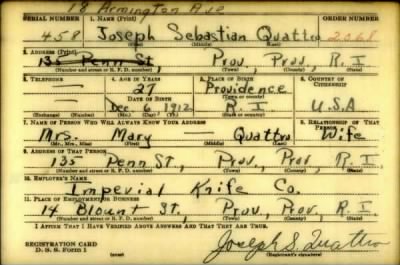 18 Armington Ave
SERIAL NUMBER 1. NAME (Print) ORDER NUMBER
458 Joseph Sebastian Quattro 2068
2. ADDRESS (Print)
135 Penn St, Prov, Prov, R. I
(Number and street or R. F. D. number) (Town) (County) (State)
3. TELEPHONE 4. AGE IN YEARS 5. PLACE OF BIRTH 6. COUNTRY OF CITIZENSHIP
27 Providence
DATE OF BIRTH (Town or county)
Dec 6, 1912 R. I U.S.A
(Exchange) (Number) (Mo.) (Day) (Yr.) (State or country)
7. NAME OF PERSON WHO WILL ALWAYS KNOW YOUR ADDRESS 8. RELATIONSHIP OF THAT PERSON
Mrs. Mary — Quattro Wife
(Mr., Mrs., Miss) (First) (Middle) (Last)
9. ADDRESS OF THAT PERSON
135 Penn St., Prov., Prov, R. I
(Number and street or R. F. D. number) (Town) (County) (State)
10. EMPLOYER'S NAME
Imperial Knife Co.
11. PLACE OF EMPLOYMENT OR BUSINESS
14 Blount St., Prov, Prov, R. I.
(Number and street or R. F. D. number) (Town) (County) (State)
I AFFIRM THAT I HAVE VERIFIED ABOVE ANSWERS AND THAT THEY ARE TRUE.
REGISTRATION CARD
D. S. S. Form 1
Joseph S. Quattro
(Registrant's signature)